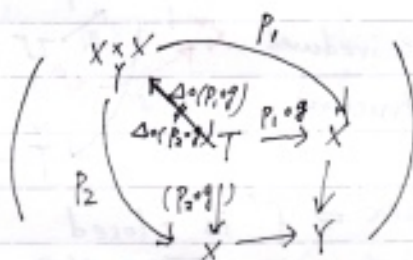 P₁
X × X
Y
Δ∘(P₁∘g)
Δ∘(P₂∘g) T P₁∘g X
P₂ (P₂∘g)
X Y